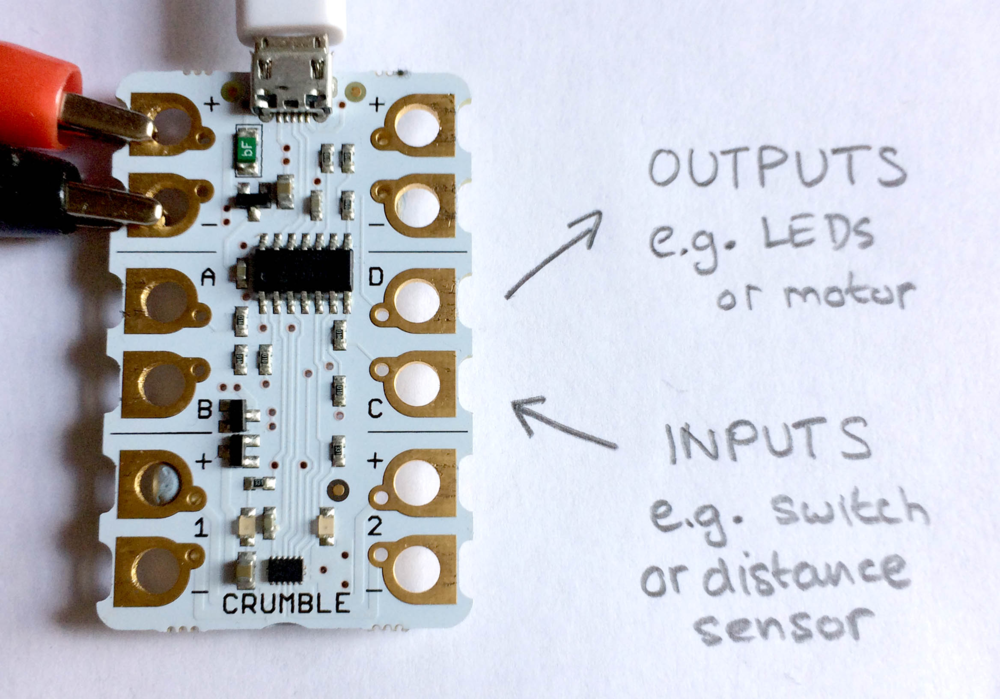 + +
bF
- -
A D
B C
+ +
1 2
- -
CRUMBLE
OUTPUTS
e.g. LEDs
or motor
INPUTS
e.g. switch
or distance
sensor